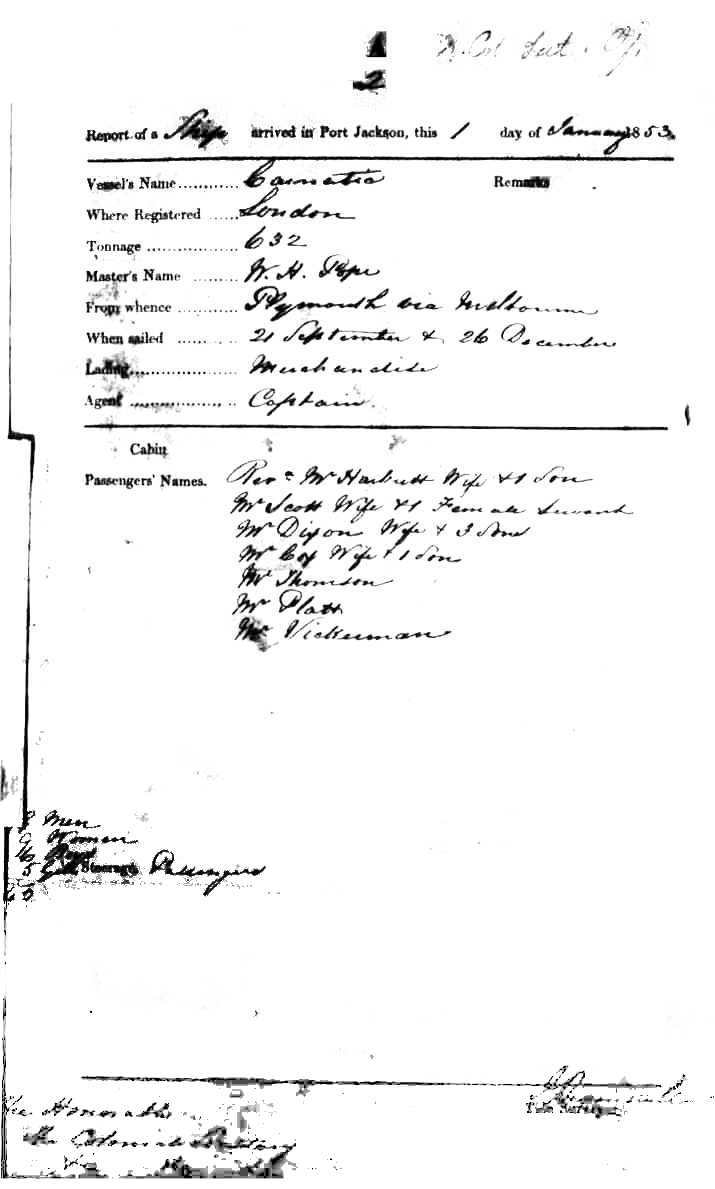 2
Report of a Ship arrived in Port Jackson, this 1 day of January 1853.
Vessel's Name ............ Carnatic Remarks
Where Registered ...... London
Tonnage .................. 632
Master's Name ......... W. H. Pope
From whence ............ Plymouth via Melbourne
When sailed ............ 21 September & 26 December
Lading..................... Merchandise
Agent .................... Captain.
Cabin
Passengers' Names. Revd. Mr Harbutt Wife & 1 Son
Mr Scott Wife & 1 Female Servant
Mr Dixon Wife & 3 Sons
Mr Cox Wife & 1 Son
Mr Thomson
Mr Platt
Mr Vickerman
Men
Women
Boys
5 Girls Steerage Passengers
The Honorable
The Colonial Secretary